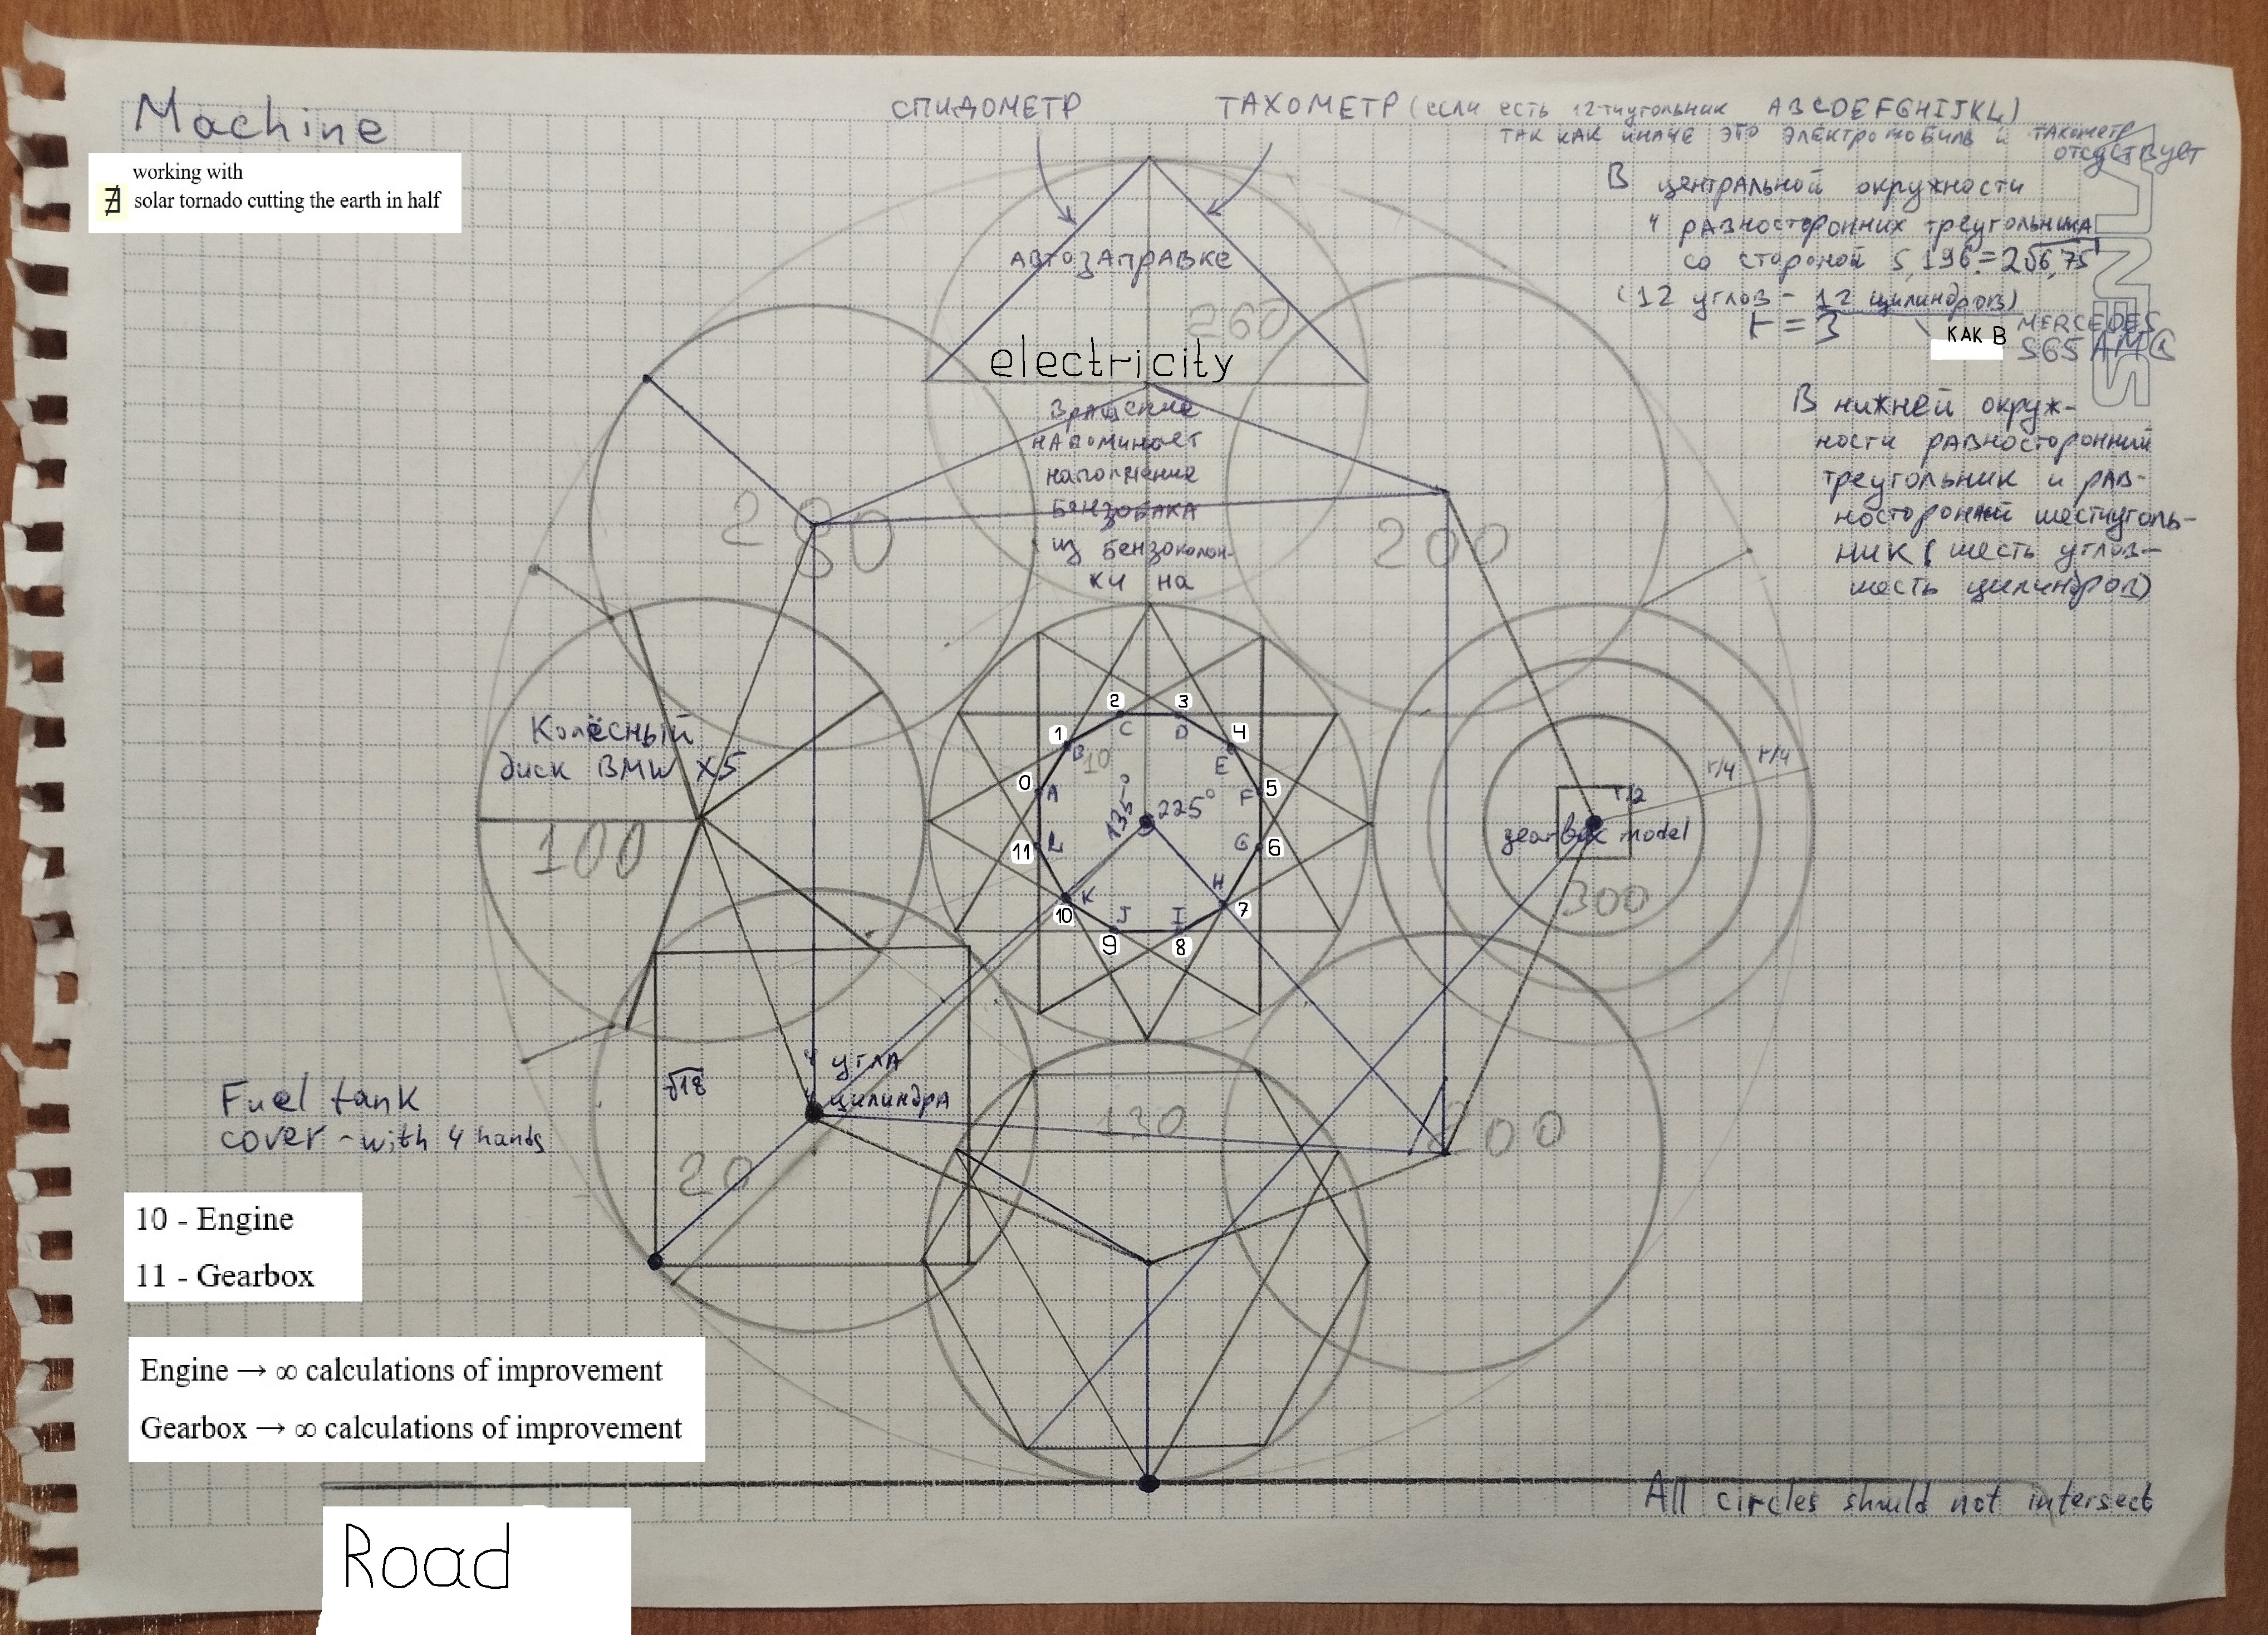 Machine
working with
∄ solar tornado cutting the earth in half
СПИДОМЕТР
ТАХОМЕТР (если есть 12-тиугольник ABCDEFGHIJKL)
ТАК КАК ИНАЧЕ ЭТО ЭЛЕКТРОМОБИЛЬ и ТАХОМЕТР
отсутствует
В центральной окружности
4 равносторонних треугольника
со стороной 5,196=2√6,75
(12 углов - 12 цилиндров)
r = 3
КАК В
MERCEDES
S65 AMG
В нижней окруж-
ности равносторонний
треугольник и рав-
носторонний шестиуголь-
ник (шесть углов-
шесть цилиндров)
АВТОЗАПРАВКЕ
260
electricity
Вращение
напоминает
наполнение
БЕНЗОБАКА
из бензоколон-
ки на
280
200
Колёсный
диск BMW X5
100
0 1 2 3 4 5 6 7 8 9 10 11
A B C D E F G H I J K L
10
135°
225°
r/4
r/4
r/2
gearbox model
300
√18
4 угла
цилиндра
20
130
200
Fuel tank
cover - with 4 hands
10 - Engine
11 - Gearbox
Engine → ∞ calculations of improvement
Gearbox → ∞ calculations of improvement
All circles should not intersect
Road